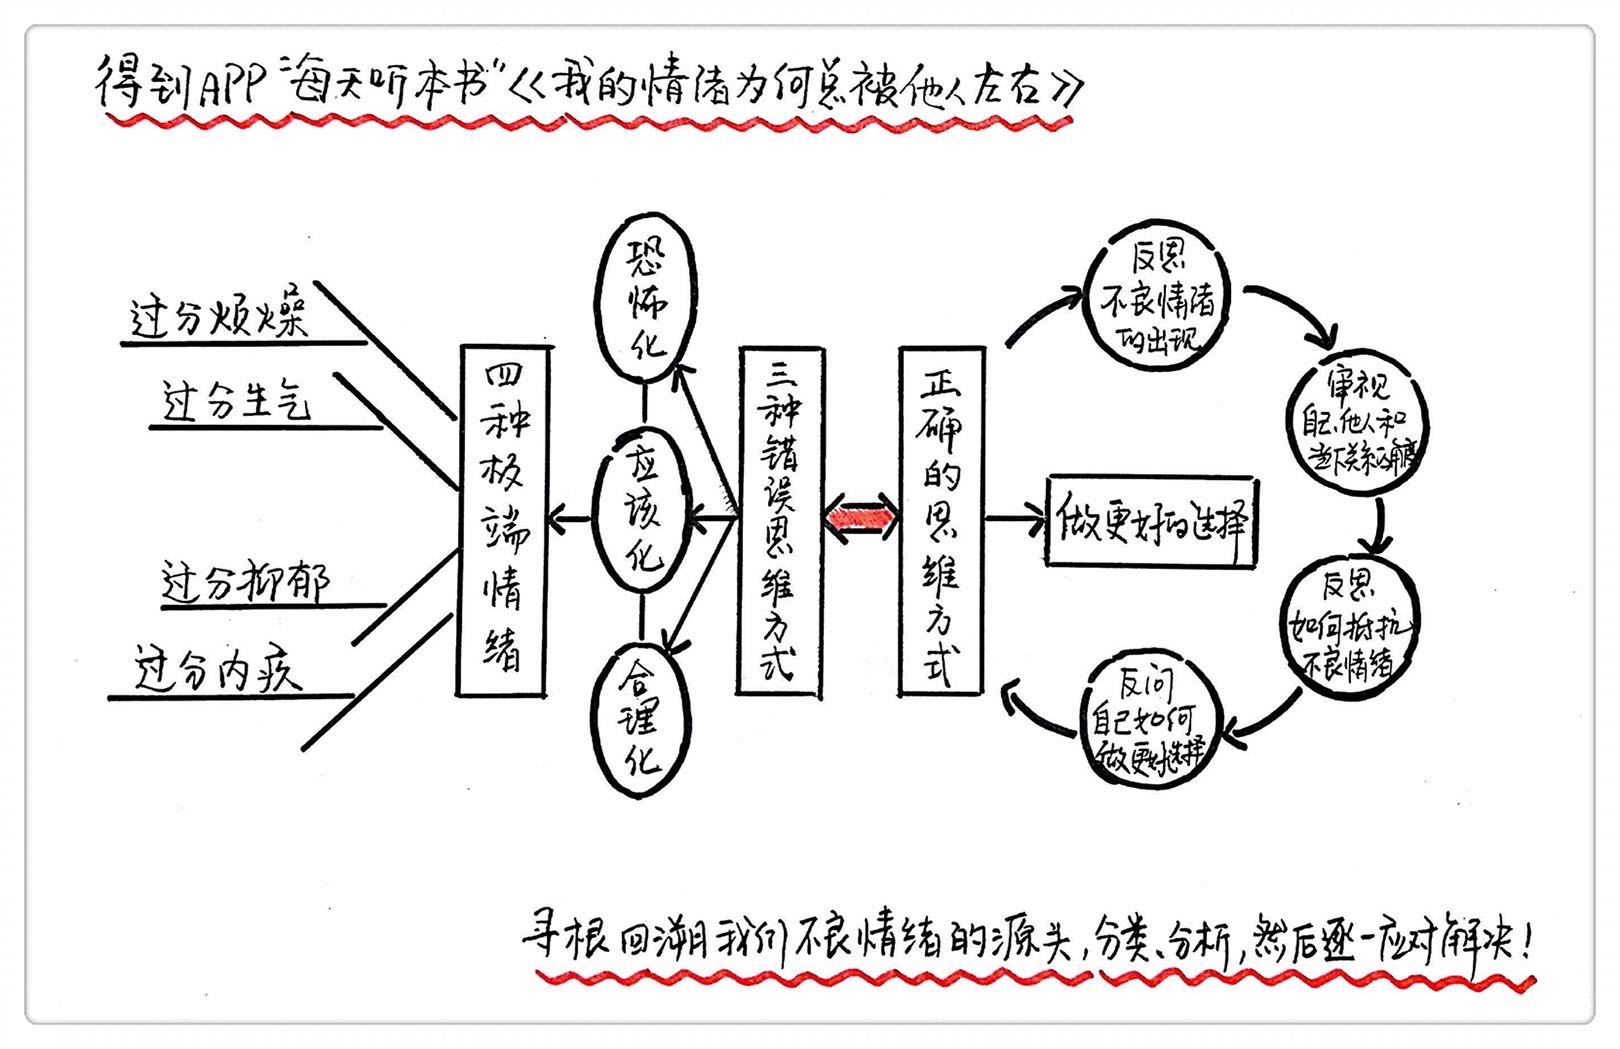 得到APP"每天听本书"《我的情绪为何总被他人左右》
过分烦燥
过分生气
过分抑郁
过分内疚
四种极端情绪
恐怖化
应该化
合理化
三种错误思维方式
正确的思维方式
做更好的选择
反思
不良情绪
的出现
审视
自己、他人和
当下关系的解读
反思
如何抵抗
不良情绪
反问
自己如何
做更好选择
寻根回溯我们不良情绪的源头,分类、分析,然后逐一应对解决!